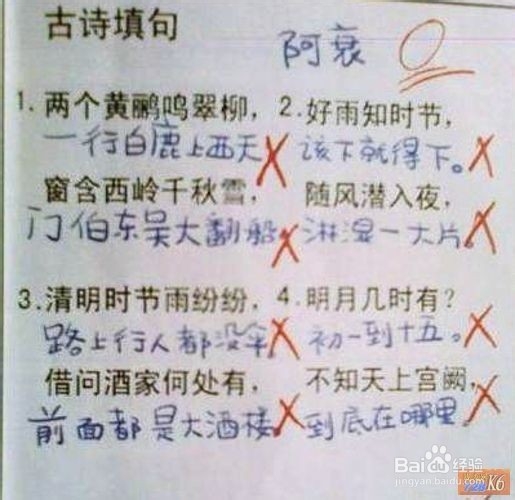 古诗填句
阿衰 0
1. 两个黄鹂鸣翠柳， 2. 好雨知时节，
一行白鹿上西天 该下就得下。
窗含西岭千秋雪， 随风潜入夜，
门伯东吴大翻船 淋湿一大片。
3. 清明时节雨纷纷， 4. 明月几时有？
路上行人都没伞 初一到十五。
借问酒家何处有， 不知天上宫阙，
前面都是大酒楼 到底在哪里
Baidu经验
jingyan.baidu.com
K6